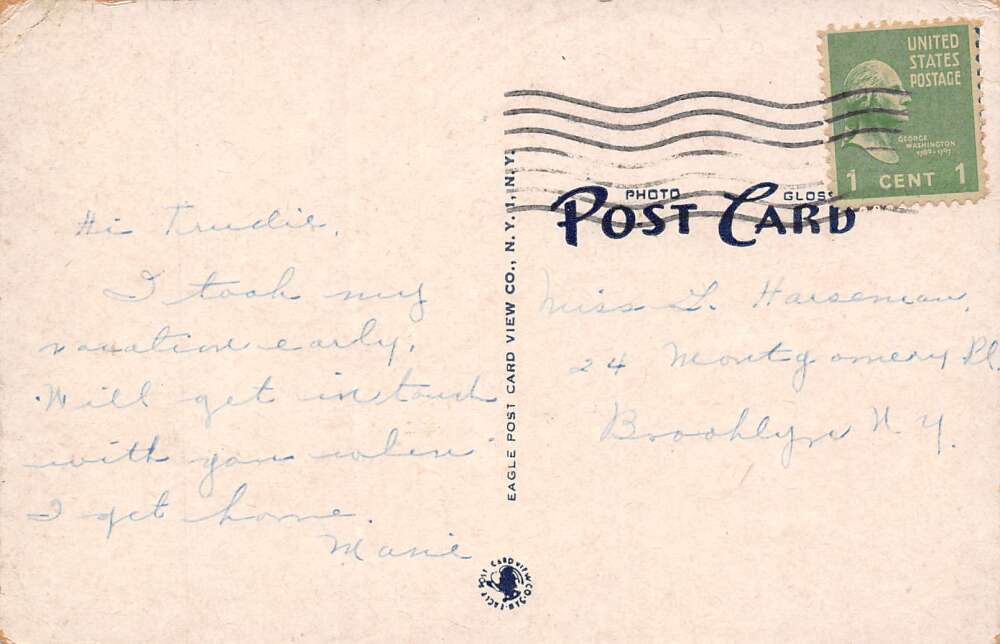 UNITED
STATES
POSTAGE
GEORGE
WASHINGTON
1789-1797
1 CENT 1
PHOTO GLOSS
POST CARD
EAGLE POST CARD VIEW CO., N. Y. 1, N. Y.
Hi Trudie,
I took my
vacation early.
Will get in touch
with you when
I get home.
Marie
Miss G. Harseman,
24 Montgomery Pl.
Brooklyn N Y.
EAGLE POST CARD VIEW CO.